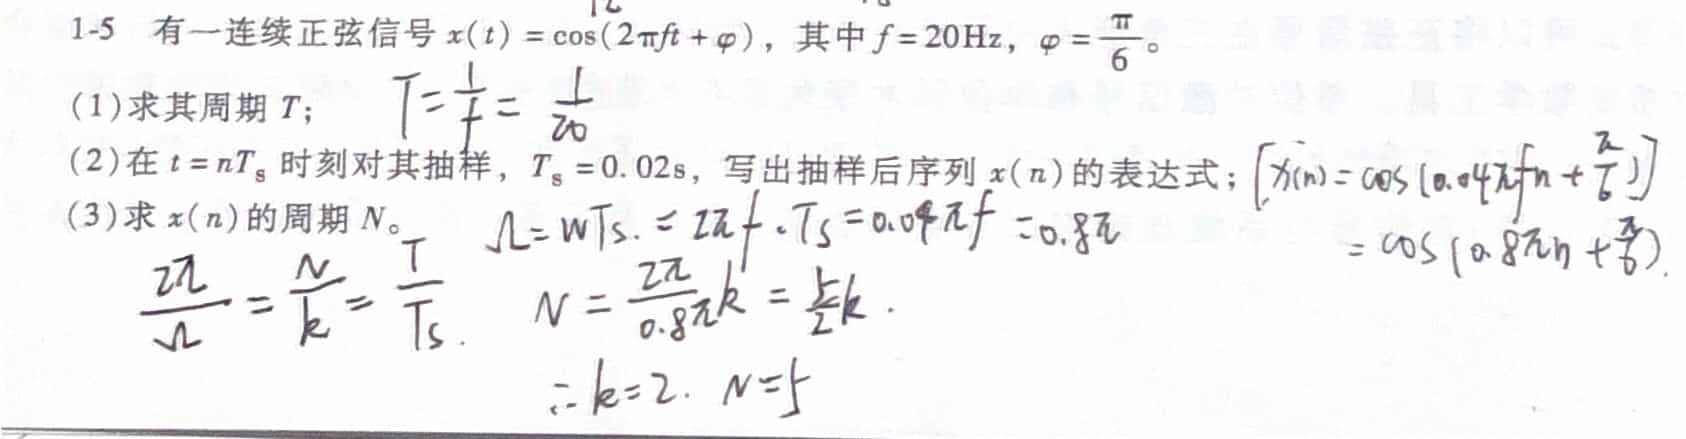 1-5 有一连续正弦信号 x(t) = cos(2πft + φ)，其中 f = 20Hz，φ = π/6。
(1)求其周期 T； T = 1/f = 1/20
(2)在 t = nTs 时刻对其抽样，Ts = 0.02s，写出抽样后序列 x(n) 的表达式； [x(n) = cos(0.04πfn + π/6)]
(3)求 x(n) 的周期 N。 Ω = wTs. = 2πf·Ts = 0.04πf = 0.8π
= cos(0.8πn + π/6).
2π/Ω = N/k = T/Ts. N = 2π/0.8π k = 5/2 k.
∴ k=2. N=5